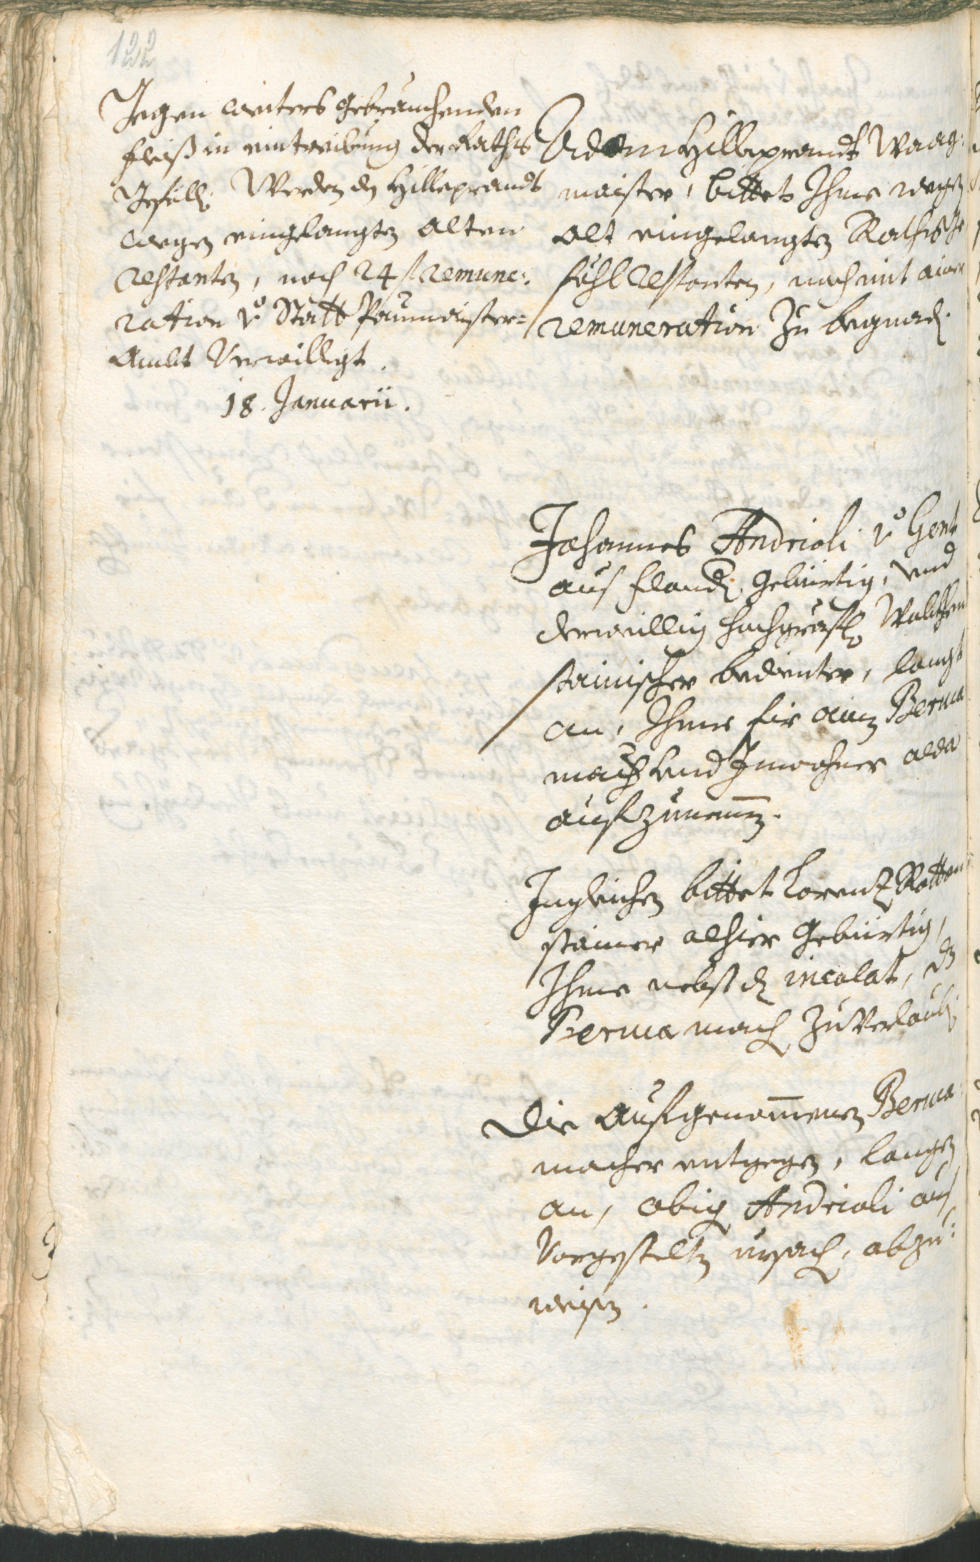 122
Jegen weiters gebrauchenden
fleiß in eintreibung der Raths
Gefäll: Werden dem Hilleprandt
wegen eingelangten alten
restanten, noch 24 f remune:
ration vo Statt Paumaister=
Ambt Verwilligt.
18. Januarii.
Adam Hilleprandt Waag:
maister, bittet Ihme wegen
alt eingelangten Raths Ge
föhl restanten, noch mit ainer
remuneration zu begnad.
Johannes Andrioli vo Gent
aus Fland. gebürtig, und
derweillig hochgräfl. Wolckhen
stainischer bedienter, langt
an, Ihme fir ainen Beruca
macher und Inwohner alda
aufzunemen.
Ingleichen bittet Lorenz Rotten
stainer alhier gebürtig,
Ihme nebst dem incolat, das
Beruca machen zuverlaub.
Die aufgenommenen Beruca
macher entgegen, langen
an, obigen Andrioli aus
Vorgestelten ursach, abzu:
weisen.